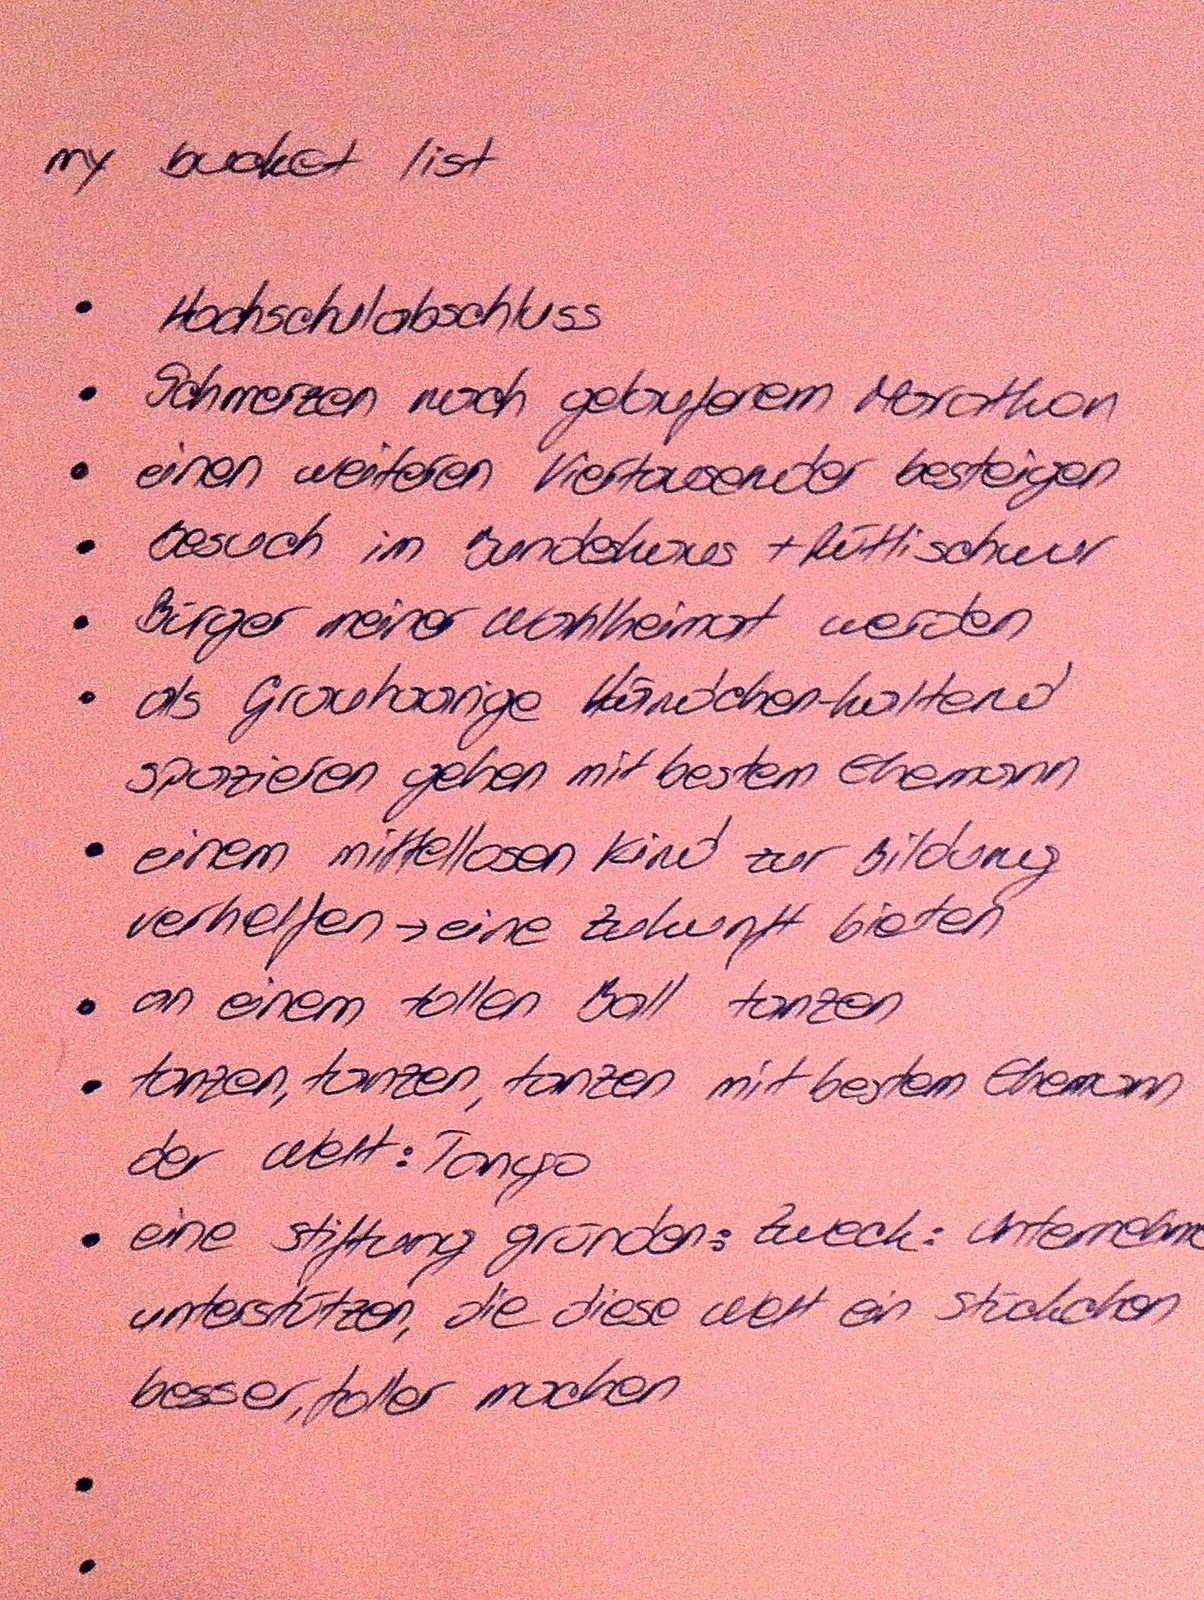 my bucket list
• Hochschulabschluss
• Schmerzen nach gelaufenem Marathon
• einen weiteren Viertausender besteigen
• Besuch im Bundeshaus + Rütlischwur
• Bürger meiner Wahlheimat werden
• als Grauhaarige Händchen-haltend
spazieren gehen mit bestem Ehemann
• einem mittellosen Kind zur Bildung
verhelfen → eine Zukunft bieten
• an einem tollen Ball tanzen
• tanzen, tanzen, tanzen mit bestem Ehemann
der Welt: Tango
• eine Stiftung gründen: Zweck: Unternehme
unterstützen, die diese Welt ein Stückchen
besser, toller machen
•
•